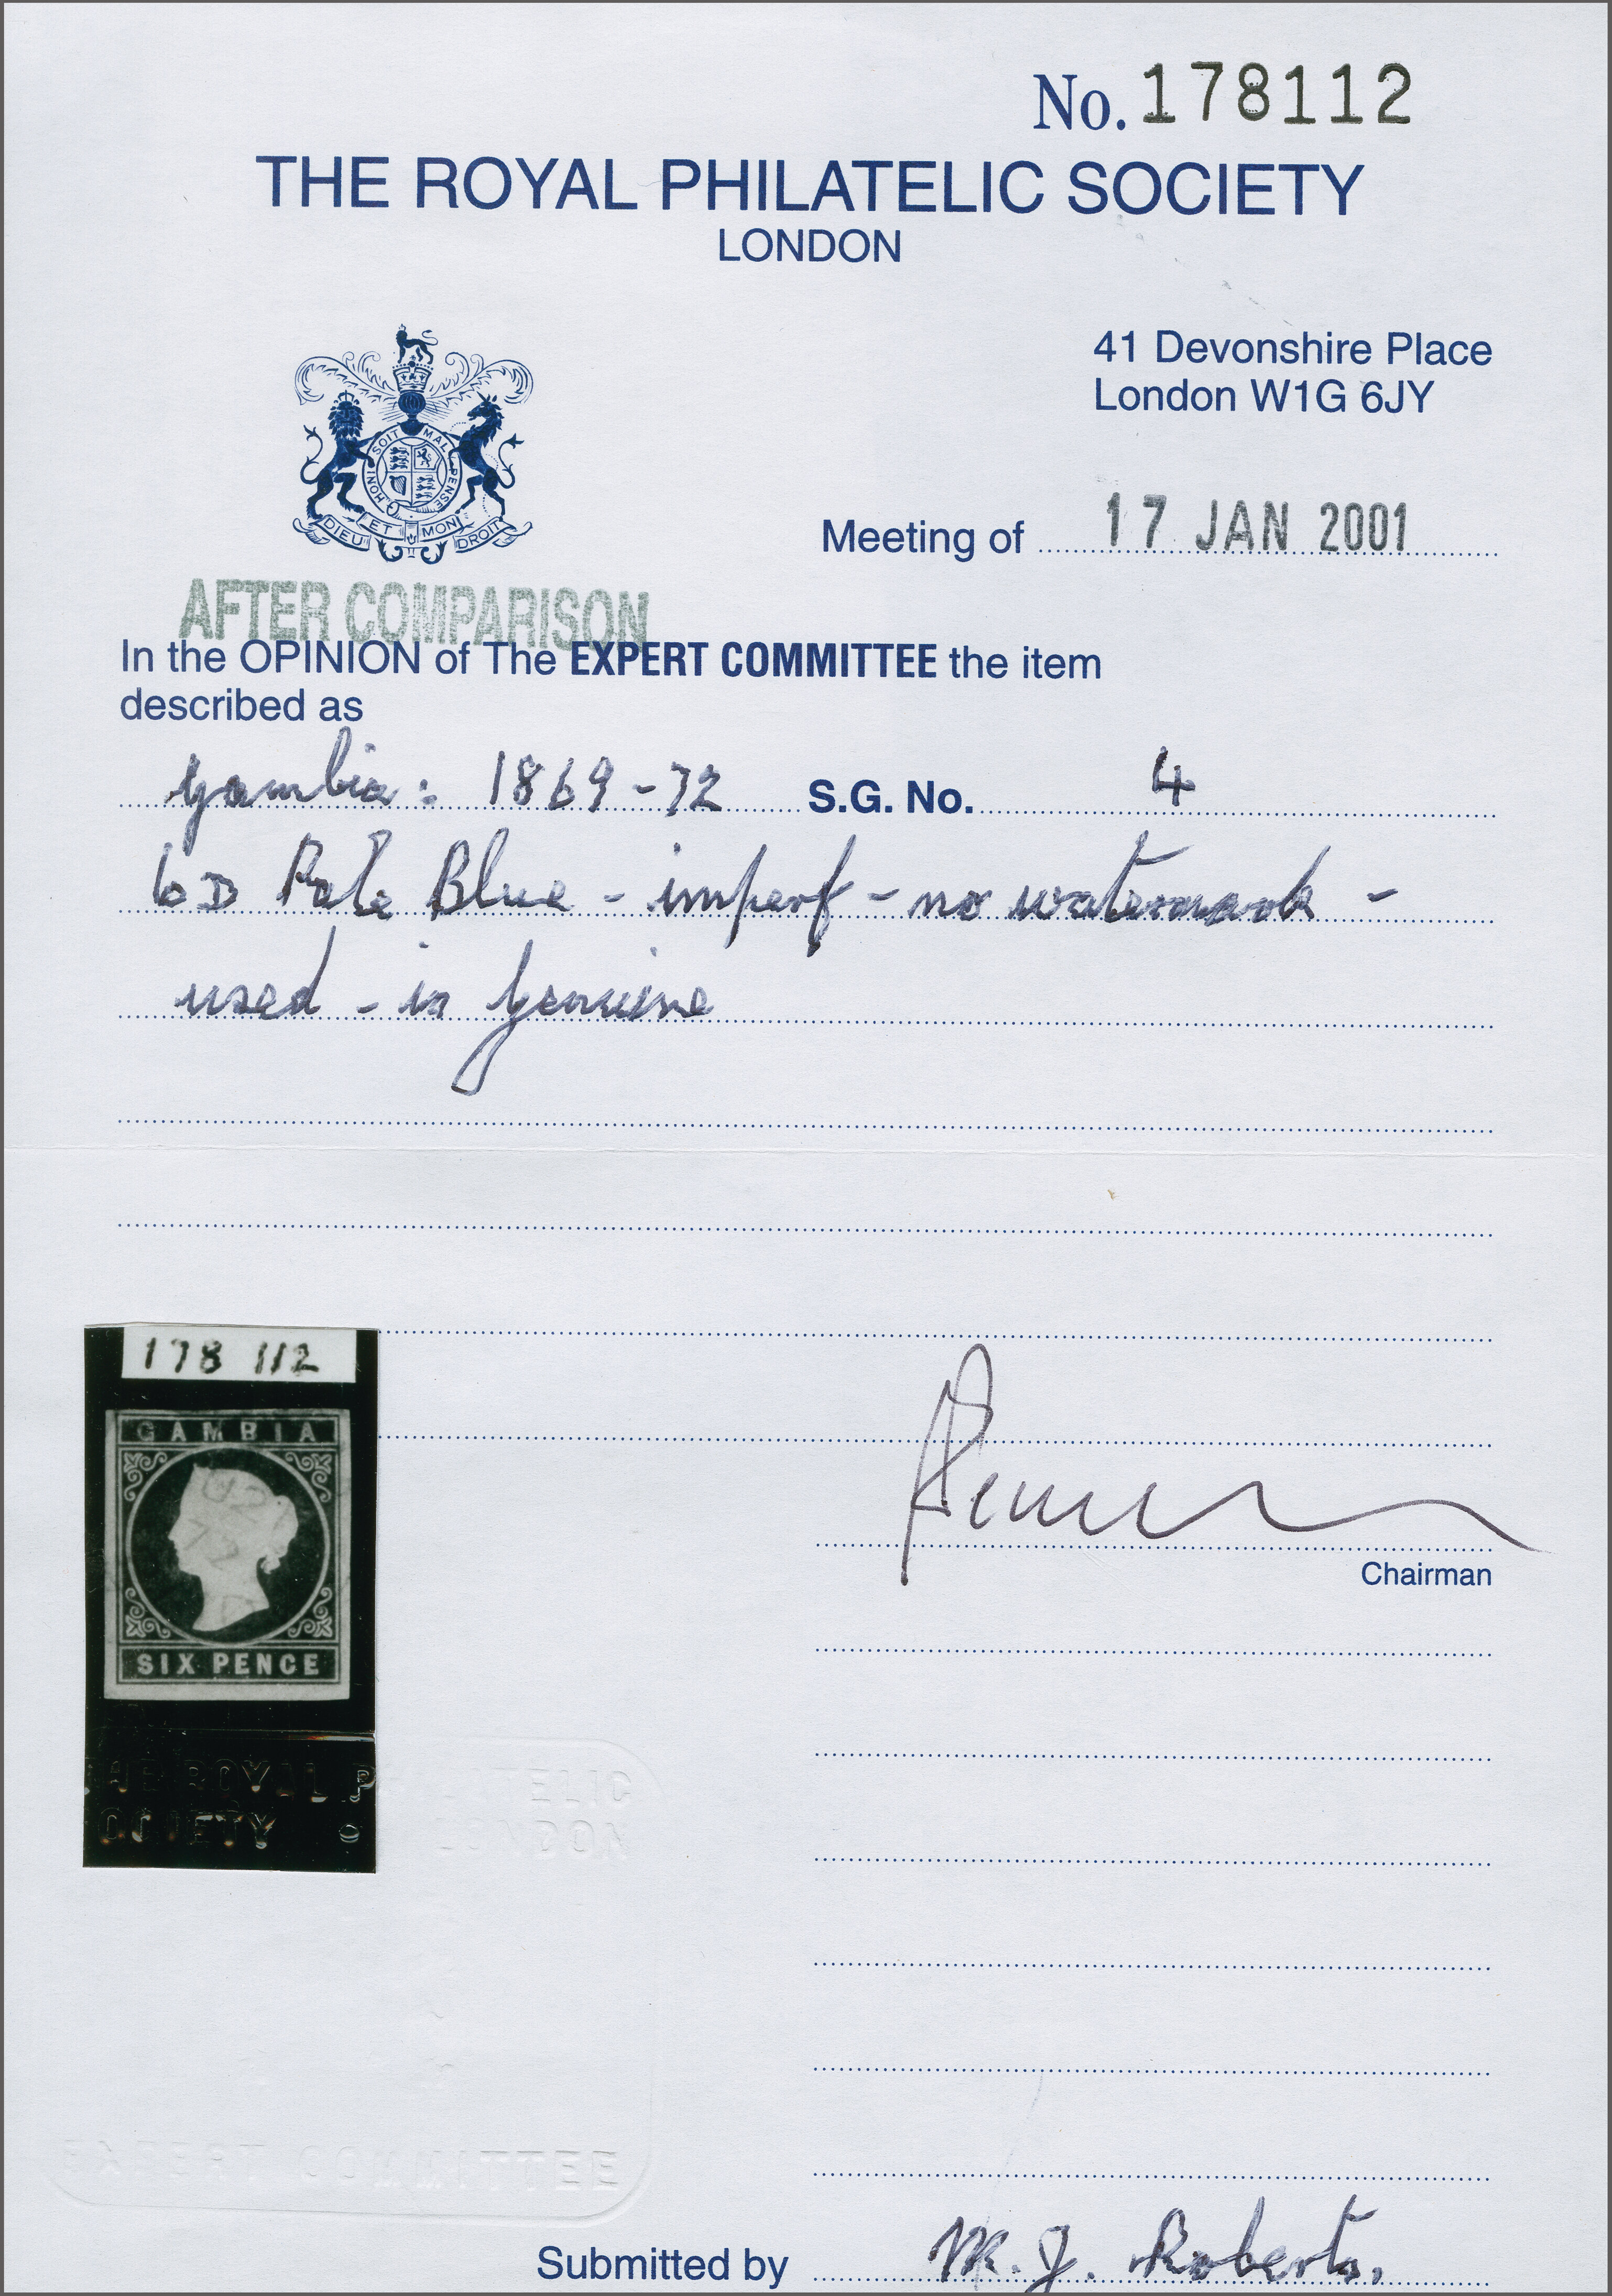 No. 178112
THE ROYAL PHILATELIC SOCIETY
LONDON
41 Devonshire Place
London W1G 6JY
HONI SOIT MAL PENSE
DIEU ET MON DROIT
Meeting of 17 JAN 2001
AFTER COMPARISON
In the OPINION of The EXPERT COMMITTEE the item
described as
Gambia: 1869-72 S.G. No. 4
6D Pale Blue - imperf - no watermark -
used - is genuine
178 112
GAMBIA
SIX PENCE
Chairman
THE ROYAL PHILATELIC
SOCIETY LONDON
EXPERT COMMITTEE
Submitted by M. J. Roberts.